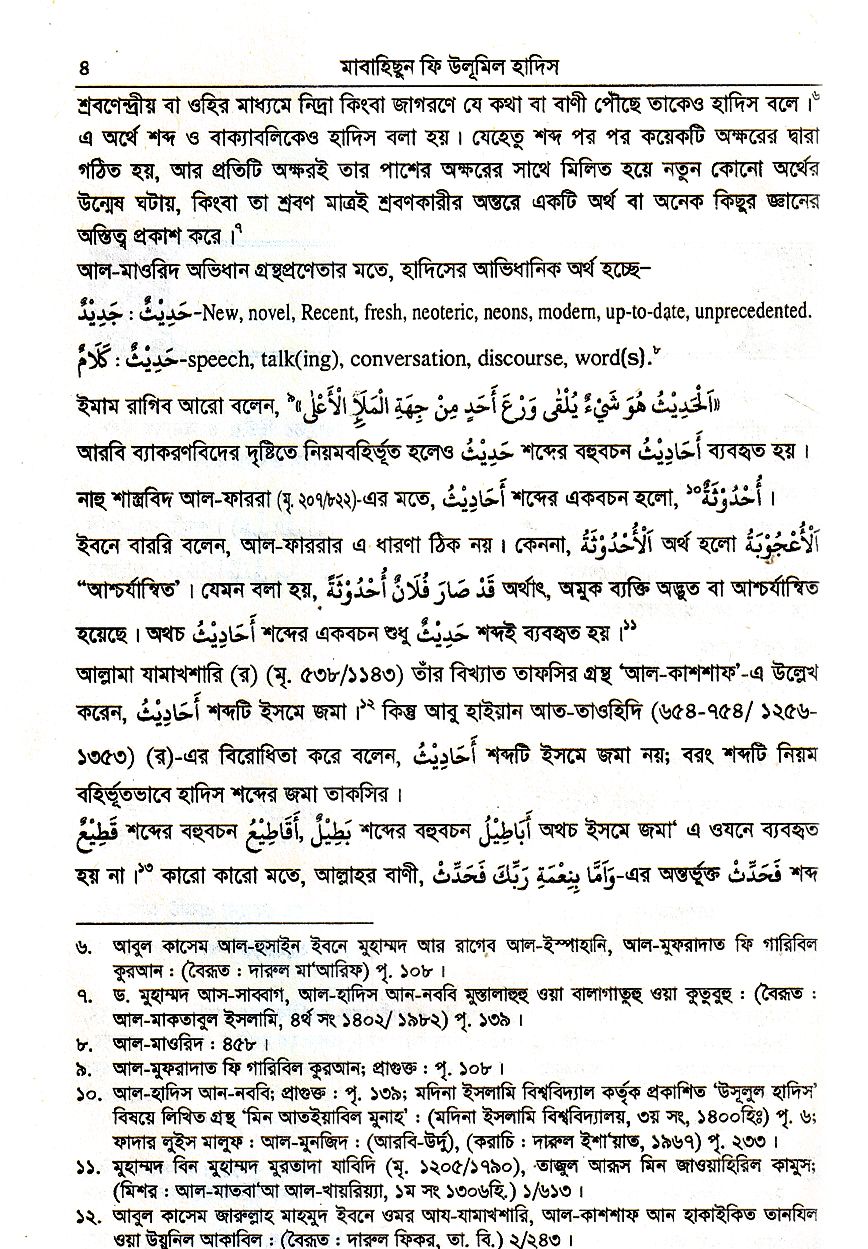 ৪ মাবাহিছুন ফি উলূমিল হাদিস
শ্রবণেন্দ্রীয় বা ওহির মাধ্যমে নিদ্রা কিংবা জাগরণে যে কথা বা বাণী পৌঁছে তাকেও হাদিস বলে।৬
এ অর্থে শব্দ ও বাক্যাবলিকেও হাদিস বলা হয়। যেহেতু শব্দ পর পর কয়েকটি অক্ষরের দ্বারা
গঠিত হয়, আর প্রতিটি অক্ষরই তার পাশের অক্ষরের সাথে মিলিত হয়ে নতুন কোনো অর্থের
উন্মেষ ঘটায়, কিংবা তা শ্রবণ মাত্রই শ্রবণকারীর অন্তরে একটি অর্থ বা অনেক কিছুর জ্ঞানের
অস্তিত্ব প্রকাশ করে।৭
আল-মাওরিদ অভিধান গ্রন্থপ্রণেতার মতে, হাদিসের আভিধানিক অর্থ হচ্ছে–
حَدِيْثٌ : جَدِيْدٌ-New, novel, Recent, fresh, neoteric, neons, modern, up-to-date, unprecedented.
حَدِيْثٌ : كَلَامٌ-speech, talk(ing), conversation, discourse, word(s).৮
ইমাম রাগিব আরো বলেন, «اَلْحَدِيْثُ هُوَ شَيْءٌ يُلْقٰى وَرْعَ أَحَدٍ مِنْ جِهَةِ الْمَلَإِ الْأَعْلٰى»৯
আরবি ব্যাকরণবিদের দৃষ্টিতে নিয়মবহির্ভূত হলেও حَدِيْثُ শব্দের বহুবচন أَحَادِيْثُ ব্যবহৃত হয়।
নাহু শাস্ত্রবিদ আল-ফাররা (মৃ. ২০৭/৮২২)-এর মতে, أَحَادِيْثُ শব্দের একবচন হলো, أُحْدُوْثَةٌ১০।
ইবনে বাররি বলেন, আল-ফাররার এ ধারণা ঠিক নয়। কেননা, اَلْأُحْدُوْثَةُ অর্থ হলো اَلْأُعْجُوْبَةُ
“আশ্চর্যান্বিত’। যেমন বলা হয়, قَدْ صَارَ فُلَانٌ أُحْدُوْثَةً অর্থাৎ, অমুক ব্যক্তি অদ্ভুত বা আশ্চর্যান্বিত
হয়েছে। অথচ أَحَادِيْثُ শব্দের একবচন শুধু حَدِيْثٌ শব্দই ব্যবহৃত হয়।১১
আল্লামা যামাখশারি (র) (মৃ. ৫৩৮/১১৪৩) তাঁর বিখ্যাত তাফসির গ্রন্থ ‘আল-কাশশাফ’-এ উল্লেখ
করেন, أَحَادِيْثُ শব্দটি ইসমে জমা।১২ কিন্তু আবু হাইয়ান আত-তাওহিদি (৬৫৪-৭৫৪/ ১২৫৬-
১৩৫৩) (র)-এর বিরোধিতা করে বলেন, أَحَادِيْثُ শব্দটি ইসমে জমা নয়; বরং শব্দটি নিয়ম
বহির্ভূতভাবে হাদিস শব্দের জমা তাকসির।
قَطِيْعٌ শব্দের বহুবচন أَقَاطِيْعُ, بَطِيْلٌ শব্দের বহুবচন أَبَاطِيْلُ অথচ ইসমে জমা‘ এ ওযনে ব্যবহৃত
হয় না।১৩ কারো কারো মতে, আল্লাহর বাণী, وَأَمَّا بِنِعْمَةِ رَبِّكَ فَحَدِّثْ-এর অন্তর্ভুক্ত فَحَدِّثْ শব্দ
৬. আবুল কাসেম আল-হুসাইন ইবনে মুহাম্মদ আর রাগেব আল-ইস্পাহানি, আল-মুফরাদাত ফি গারিবিল
কুরআন : (বৈরূত : দারুল মা‘আরিফ) পৃ. ১০৮।
৭. ড. মুহাম্মদ আস-সাব্বাগ, আল-হাদিস আন-নববি মুস্তালাহুহু ওয়া বালাগাতুহু ওয়া কুতুবুহু : (বৈরূত :
আল-মাকতাবুল ইসলামি, ৪র্থ সং ১৪০২/ ১৯৮২) পৃ. ১৩৯।
৮. আল-মাওরিদ : ৪৫৮।
৯. আল-মুফরাদাত ফি গারিবিল কুরআন; প্রাগুক্ত : পৃ. ১০৮।
১০. আল-হাদিস আন-নববি; প্রাগুক্ত : পৃ. ১৩৯; মদিনা ইসলামি বিশ্ববিদ্যাল কর্তৃক প্রকাশিত ‘উসূলুল হাদিস’
বিষয়ে লিখিত গ্রন্থ ‘মিন আতইয়াবিল মুনাহ’ : (মদিনা ইসলামি বিশ্ববিদ্যালয়, ৩য় সং, ১৪০০হিঃ) পৃ. ৬;
ফাদার লুইস মালুফ : আল-মুনজিদ : (আরবি-উর্দু), (করাচি : দারুল ইশা‘য়াত, ১৯৬৭) পৃ. ২৩৩।
১১. মুহাম্মদ বিন মুহাম্মদ মুরতাদা যাবিদি (মৃ. ১২০৫/১৭৯০), তাজুল আরূস মিন জাওয়াহিরিল কামুস;
(মিশর : আল-মাতবা‘আ আল-খায়রিয়্যা, ১ম সং ১৩০৬হি.) ১/৬১৩।
১২. আবুল কাসেম জারুল্লাহ মাহমুদ ইবনে ওমর আয-যামাখশারি, আল-কাশশাফ আন হাকাইকিত তানযিল
ওয়া উয়ুনিল আকাবিল : (বৈরূত : দারুল ফিকর, তা. বি.) ২/২৪৩।